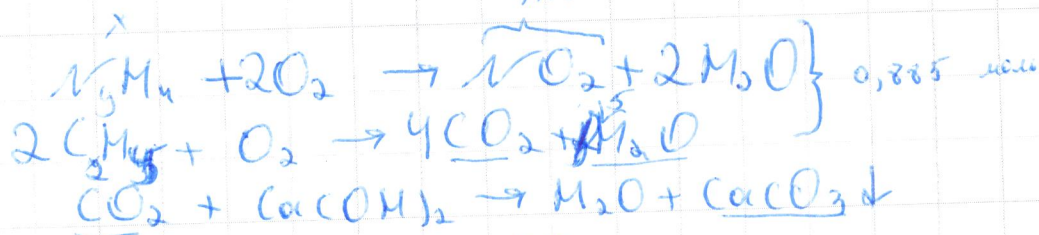 x
N₂H₄ + 2O₂ → NO₂ + 2H₂O } 0,885 моль
2C₂H₅ + O₂ → 4CO₂ + 5H₂O
CO₂ + Ca(OH)₂ → H₂O + CaCO₃↓